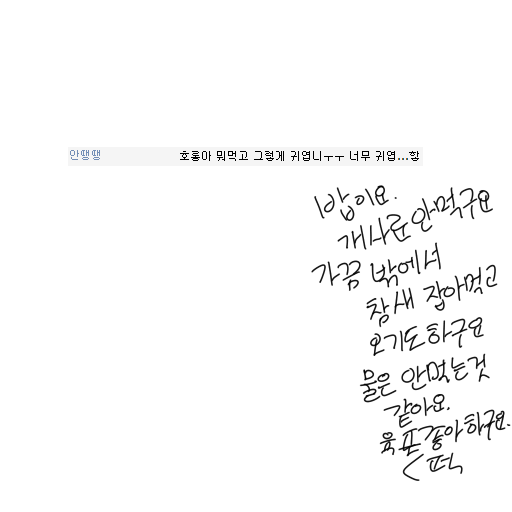 안땡땡 호롷아 뭐먹고 그렇게 귀엽니ㅜㅜ 너무 귀엽...항
밥이요.
개사룐안먹구요
가끔 밖에서
참새 잡아먹고
오기도하구요
물은 안먹는것
같아요.
육포좋아하구요.
< 떡